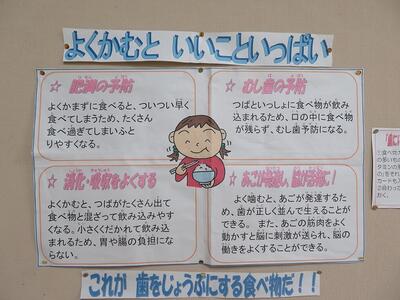 よくかむと いいこといっぱい
☆ 肥満の予防
よくかまずに食べると、ついつい早く
食べてしまうため、たくさん
食べ過ぎてしまいふと
りやすくなる。
☆ むし歯の予防
つばといっしょに食べ物が飲み
込まれるため、口の中に食べ物
が残らず、むし歯予防になる。
☆ 消化・吸収をよくする
よくかむと、つばがたくさん出て
食べ物と混ざって飲み込みやす
くなる。小さくだかれて飲み込
まれるため、胃や腸の負担にな
らない。
☆ あごが発達し、脳が活発に!
よく噛むと、あごが発達するた
め、歯が正しく並んで生えることが
できる。 また、あごの筋肉をよく
動かすと脳に刺激が送られ、脳の
働きをよくすることができる。
これが 歯をじょうぶにする食べ物だ!!